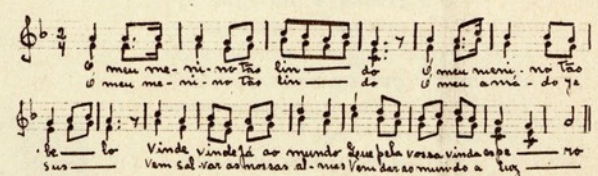 Ó meu me-ni-no tão lin — do Ó meu meni-no tão
Ó meu me-ni-no tão lin — do Ó meu ama-do Je
be — lo Vinde vinde já ao mundo Que pela vossa vinda espe — ro
sus — Vem sal-var as nossas al-mas Vem dar ao mundo a luz —